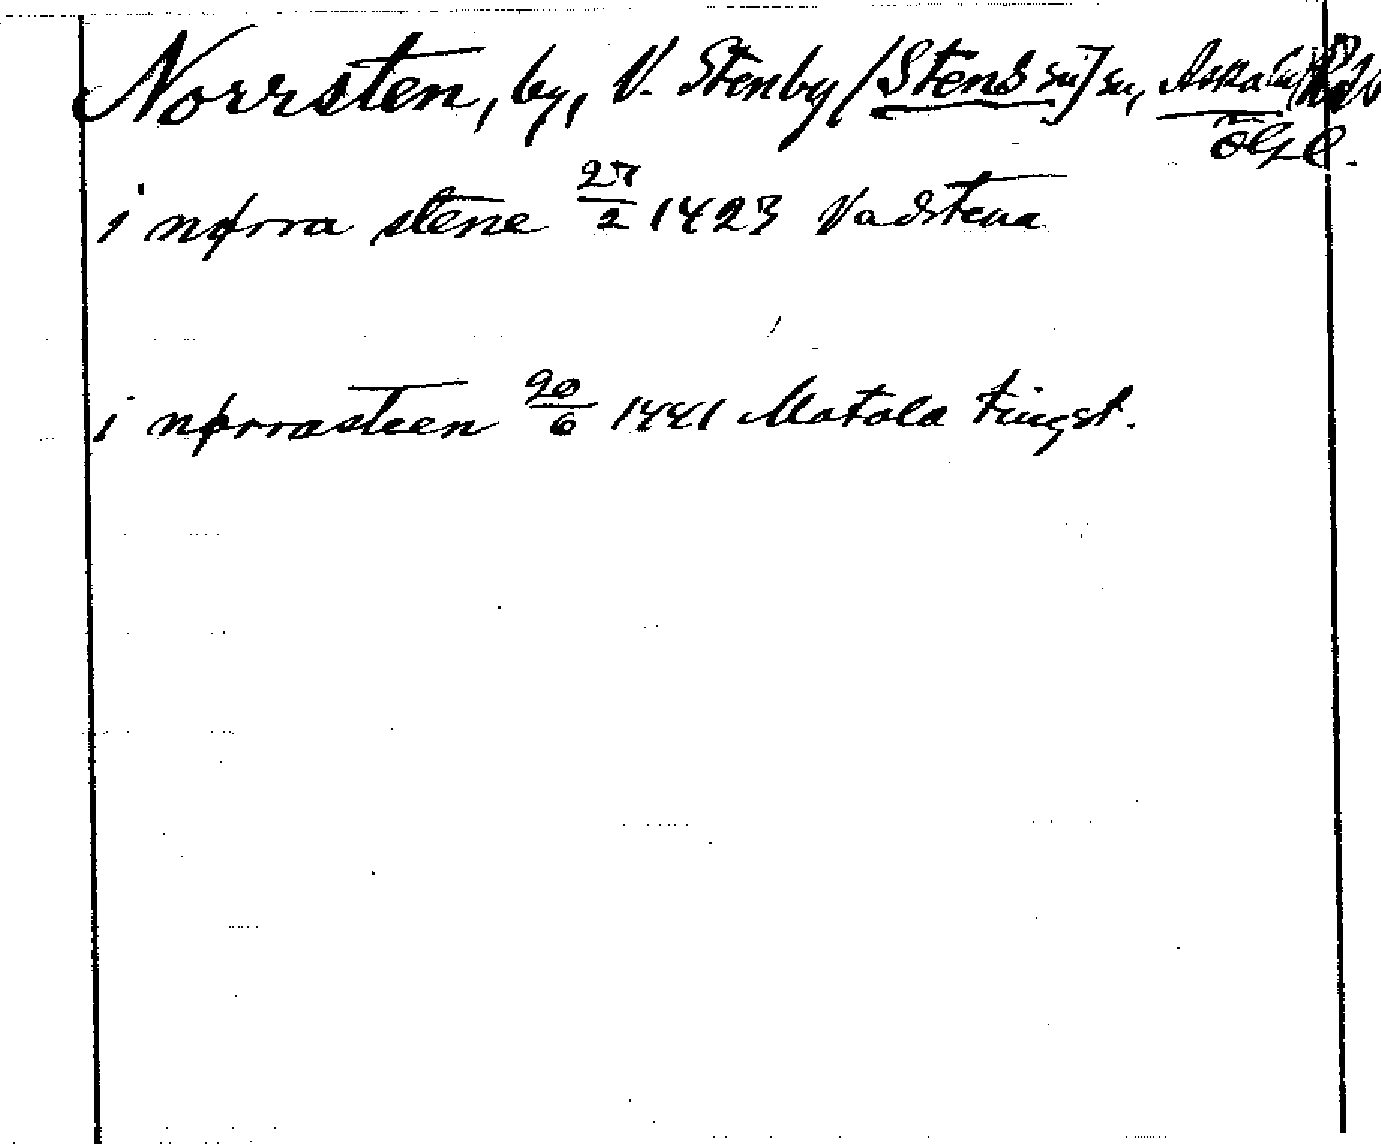 Norrsten, by, V. Stenby [Stens sn] sn, Aska hd
ÖGL.
i nørra stene 27/2 1423 Vadstena
i nørrasteen 20/6 1441 Motala tingst.